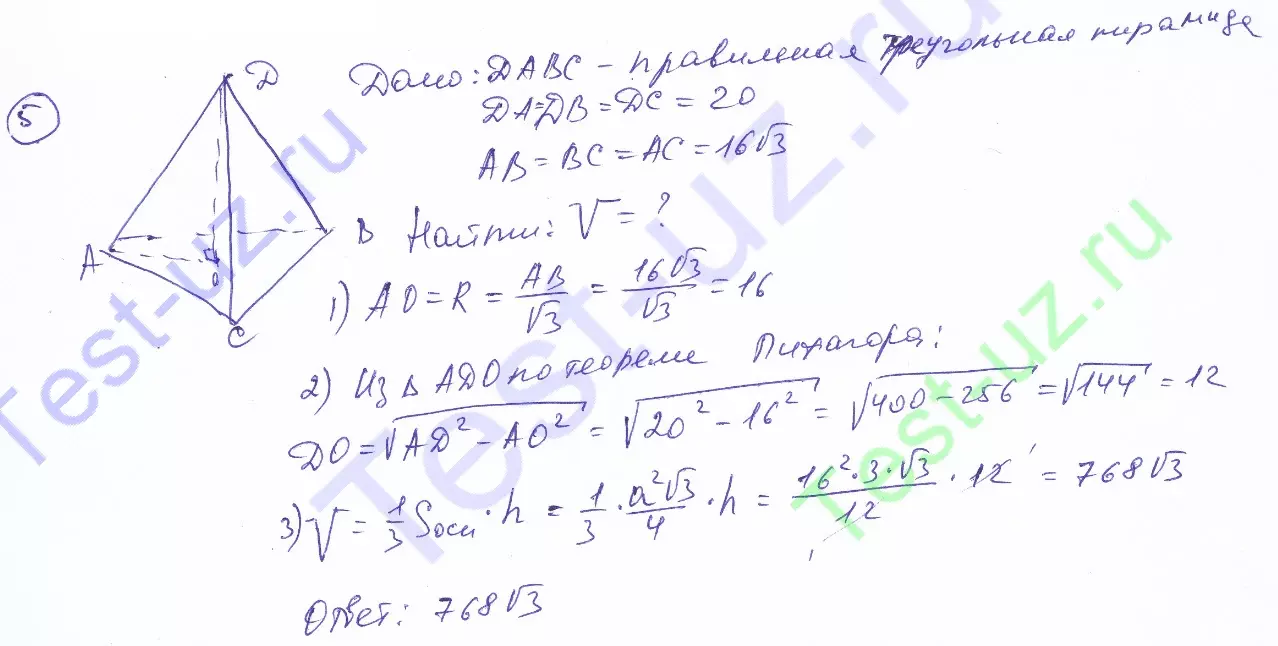 5
D
A
B
C
O
Дано: DABC - правильная треугольная пирамида
DA=DB=DC=20
AB=BC=AC=16√3
Найти: V=?
1) AO=R=AB/√3=16√3/√3=16
2) Из Δ ADO по теореме Пифагора:
DO=√(AD²-AO²)=√(20²-16²)=√(400-256)=√144=12
3) V=1/3 Sосн·h=1/3·a²√3/4·h=16²·3·√3/12·12=768√3
Ответ: 768√3
Test-uz.ru
Test-uz.ru
Test-uz.ru